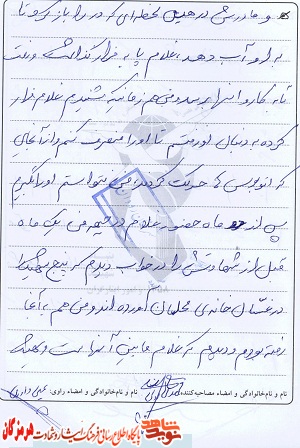 و مادرش در همین لحظه‌ای که در را باز کرد تا
به او آب دهد، غلام پا به فرار گذاشت و رفت
تا به کاروانها برسد و من هم زمانیکه شنیدم غلام فرار
کرده به دنبال او رفتم تا او را منصرف کنم و از آنجایی
که اتوبوس ها حرکت کردند، من نتوانستم او را بگیرم
پس از دو ماه حضور غلام در جبهه من یک ماه
قبل از شهادتش را در خواب دیدم که پنج شهید را
در غسالخانه‌ی محله‌مان آورده اند و من هم به آنجا
رفته بودم و دیدم که غلام ما بین آنها است و شهید
نام و نام خانوادگی و امضاء مصاحبه کننده:
نام و نام خانوادگی و امضاء راوی:
نوید شاهد
پایگاه اطلاع رسانی فرهنگ ایثار و شهادت هرمزگان